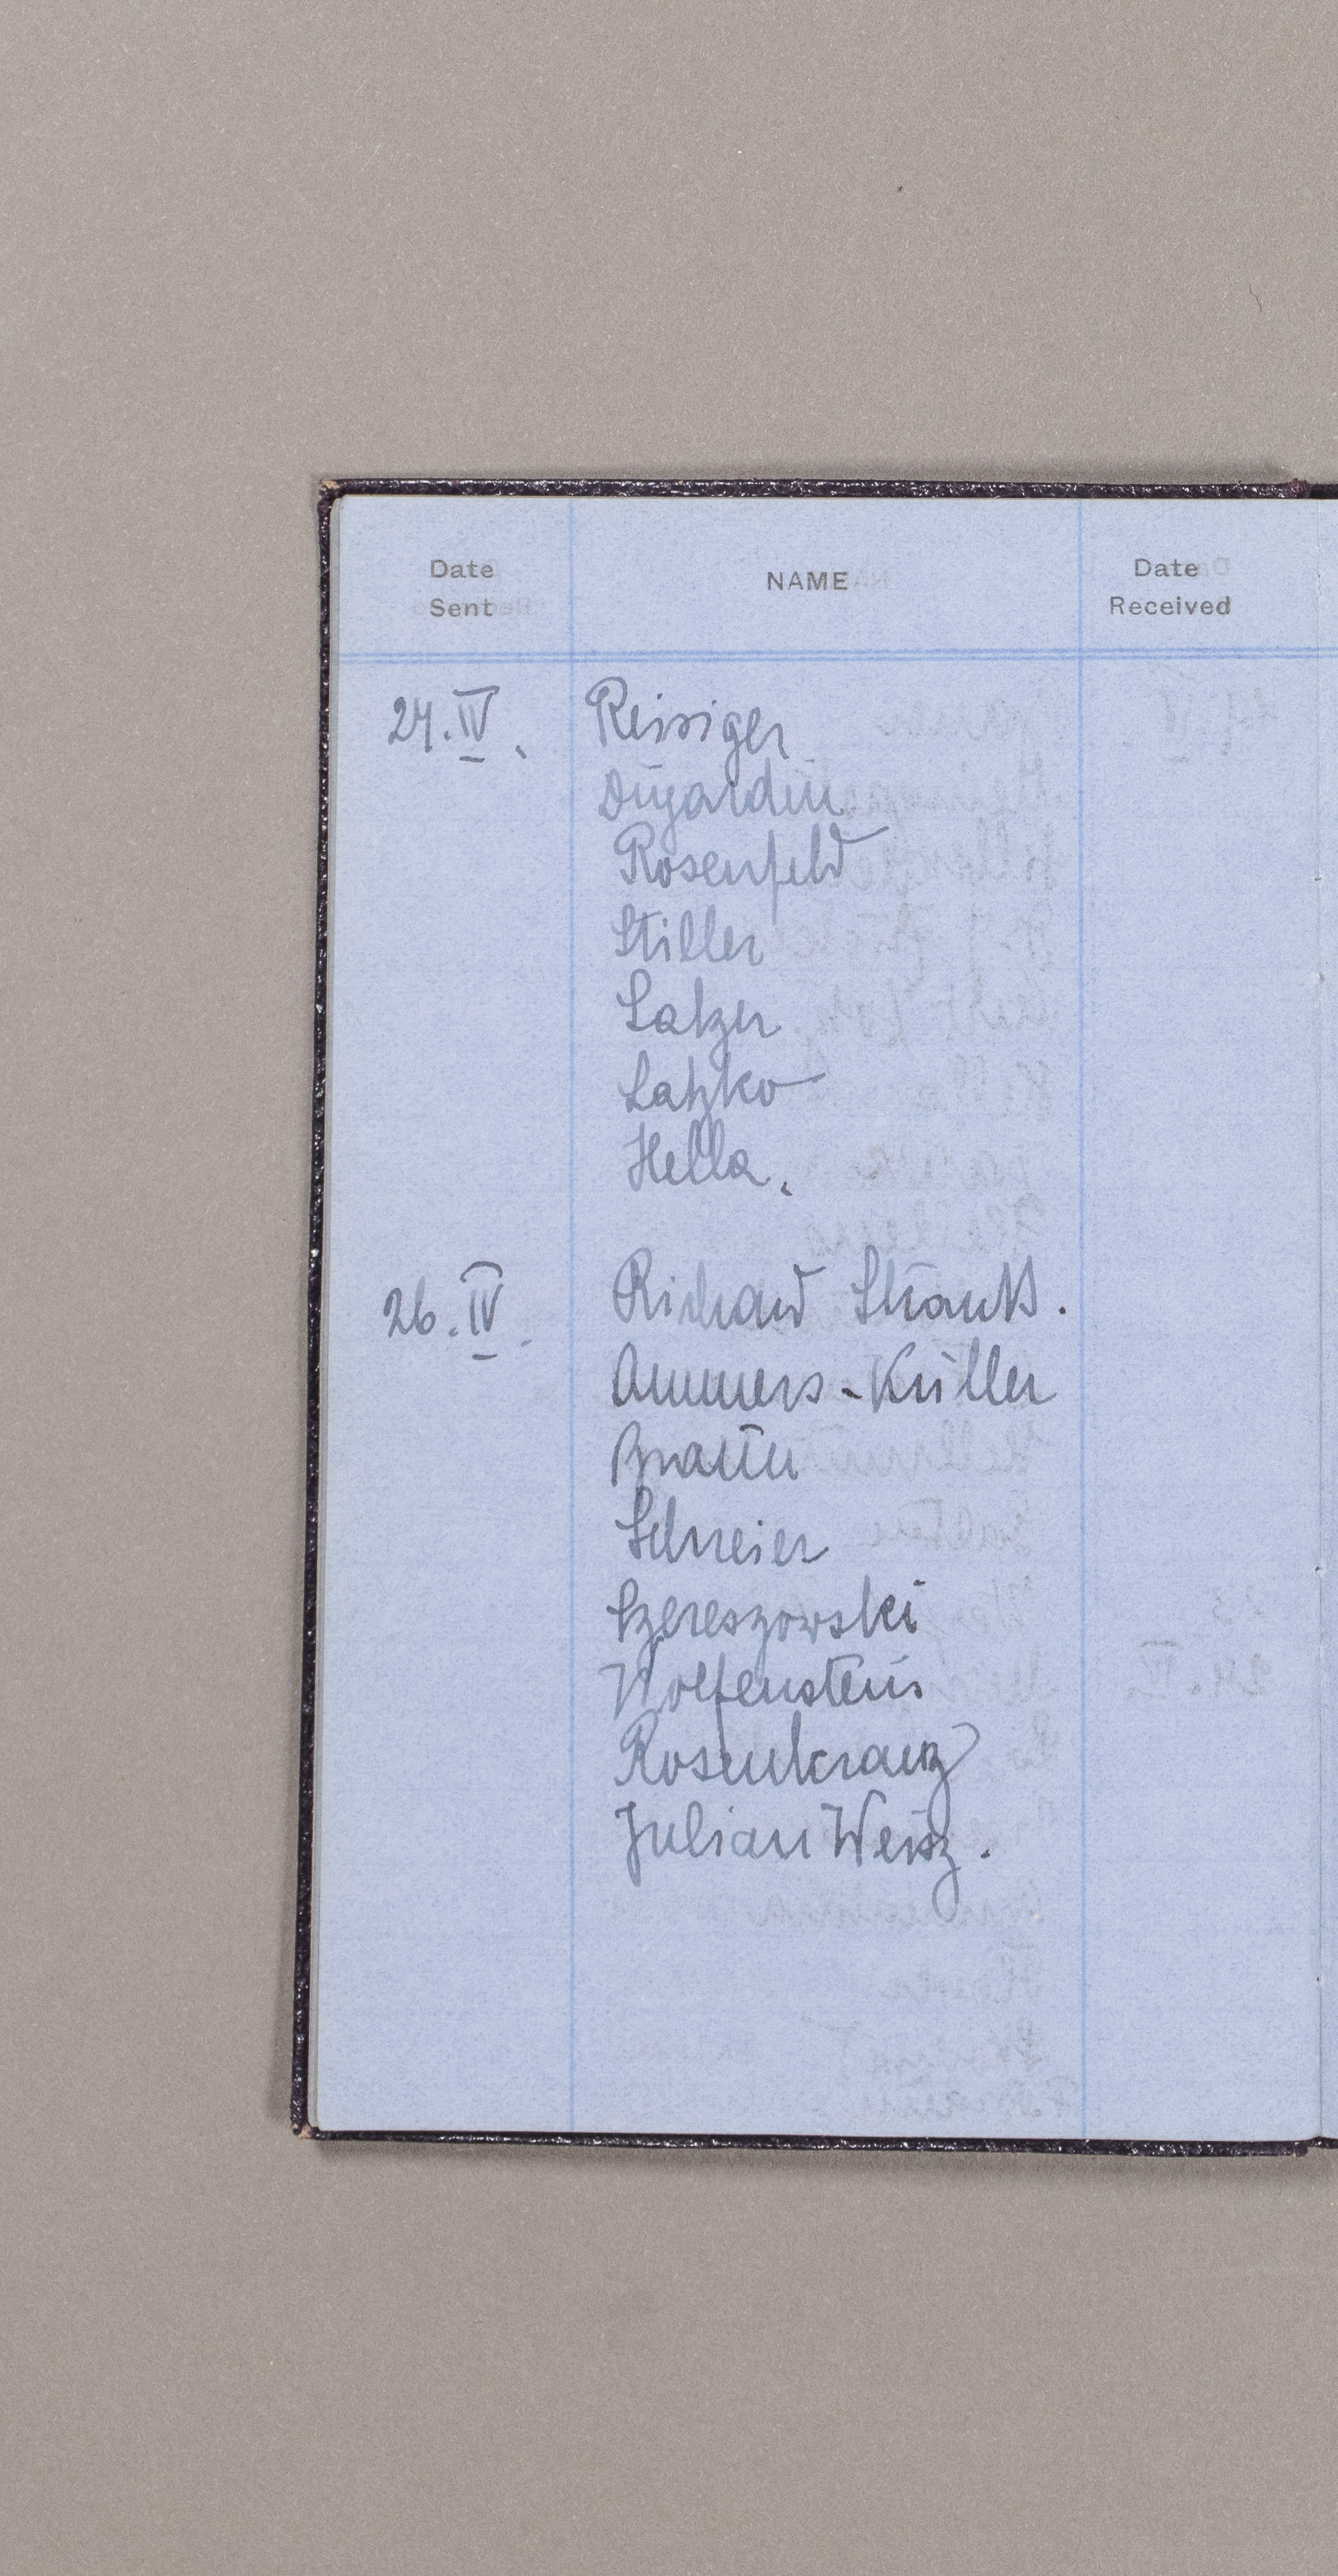 Date Sent NAME Date Received
24. IV. Reisiger
Dujardin
Rosenfeld
Stiller
Latzer
Latzko
Hella.
26. IV. Richard Strauß.
Ammers-Küller
Braun
Schreier
Szereszowski
Wolfenstein
Rosenkranz
Julian Weisz.